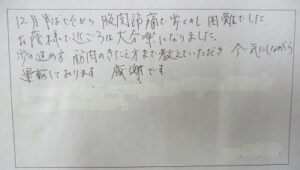 12月半ば頃から 股関節痛で歩くのも困難でした。
お蔭様で近ごろは大分楽になりました。
歩の進め方、筋肉のきたえ方まで教えていただき 今、気にしながら
運動しております 感謝です